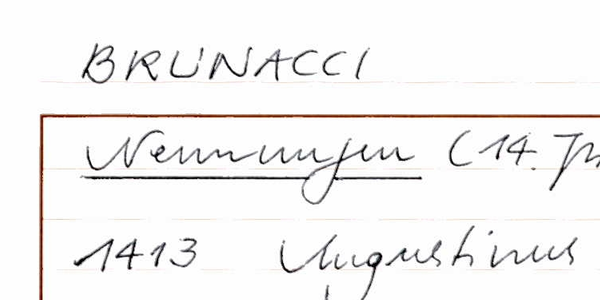 BRUNACCI
Nennungen (14. Jh
1413 Augustinus